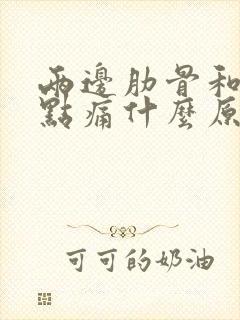 兩邊肋骨和
點痛什麼原
可可的奶油